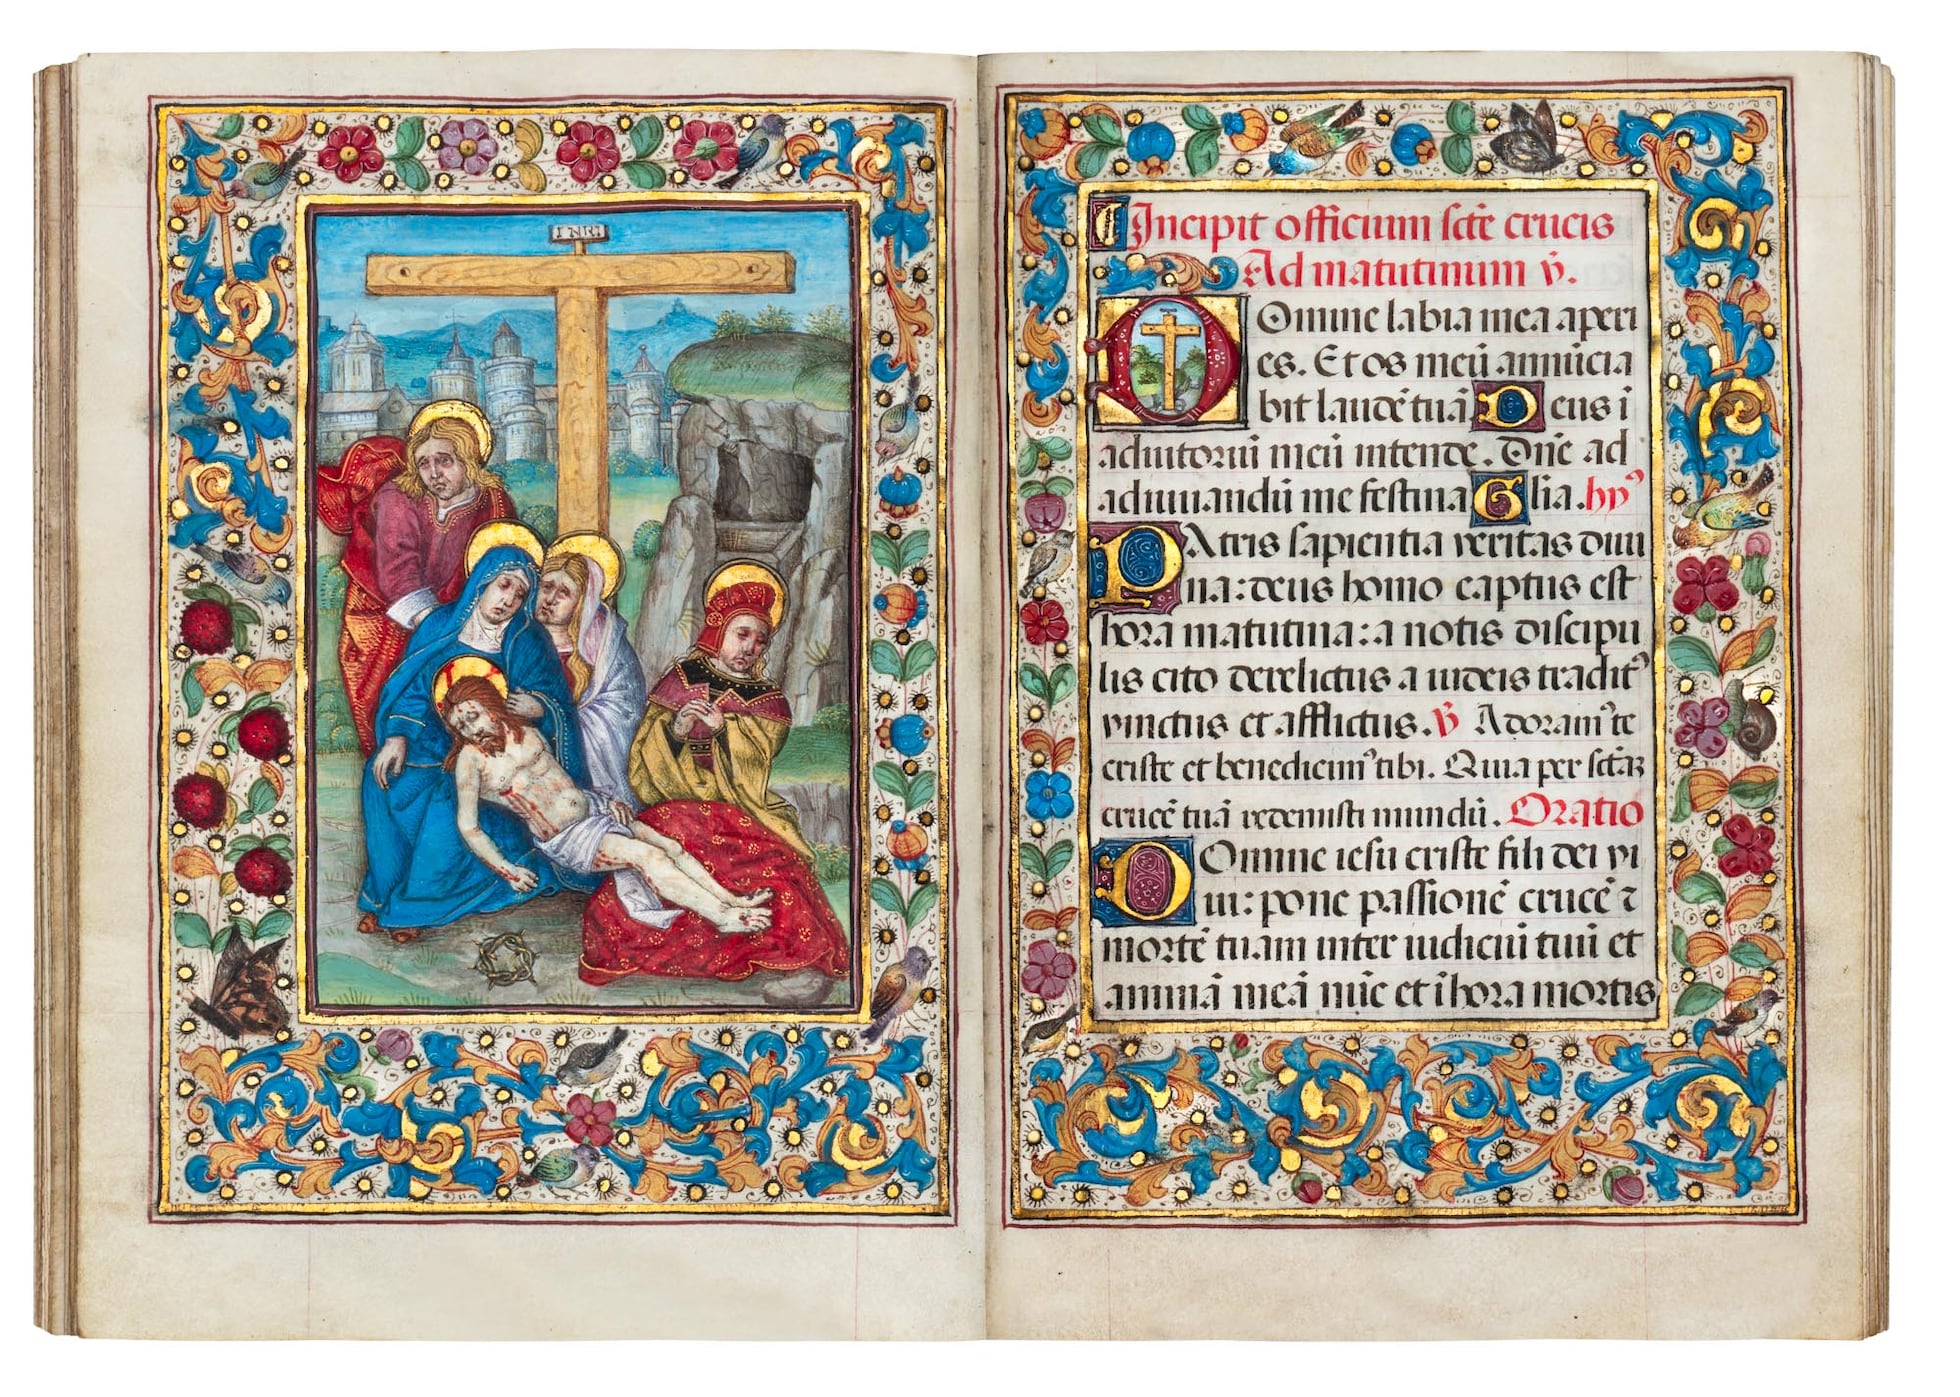 INRI
Incipit officium scte crucis
Ad matutinum v̄.
Domine labia mea aperi
es. Et os meū annūcia
bit laudē tuā Deus ī
adiutoriū meū intende. Dn̄e ad
adiuuandū me festina Glīa. hy⁹
Patris sapientia veritas diui
na: deus homo captus est
hora matutina: a notis discipu
lis cito derelictus a iudeis tradit⁹
vinctus et afflictus. v̄ Adoram⁹ te
criste et benedicim⁹ tibi. Quia per sctāꝫ
crucē tuā redemisti mundū. Oratio
Domine iesu criste fili dei vi
ui: pone passionē crucē ⁊
mortē tuam inter iudiciū tuū et
animā meā nūc et ī hora mortis